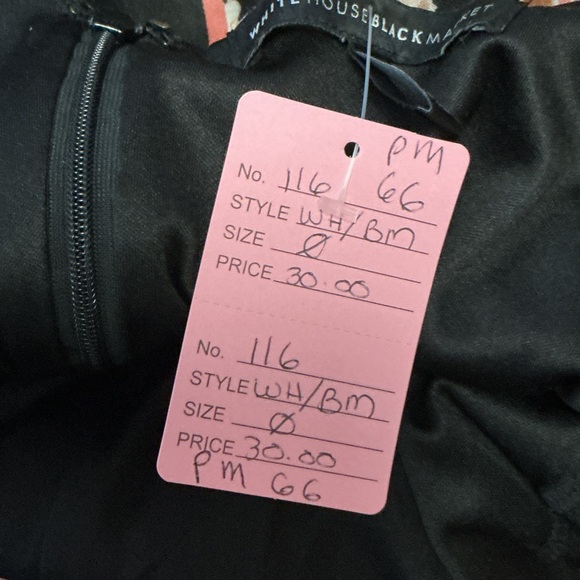 WHITE HOUSE BLACK MARKET
PM
No. 116 66
STYLE WH/BM
SIZE 0
PRICE 30.00
No. 116
STYLE WH/BM
SIZE 0
PRICE 30.00
PM 66